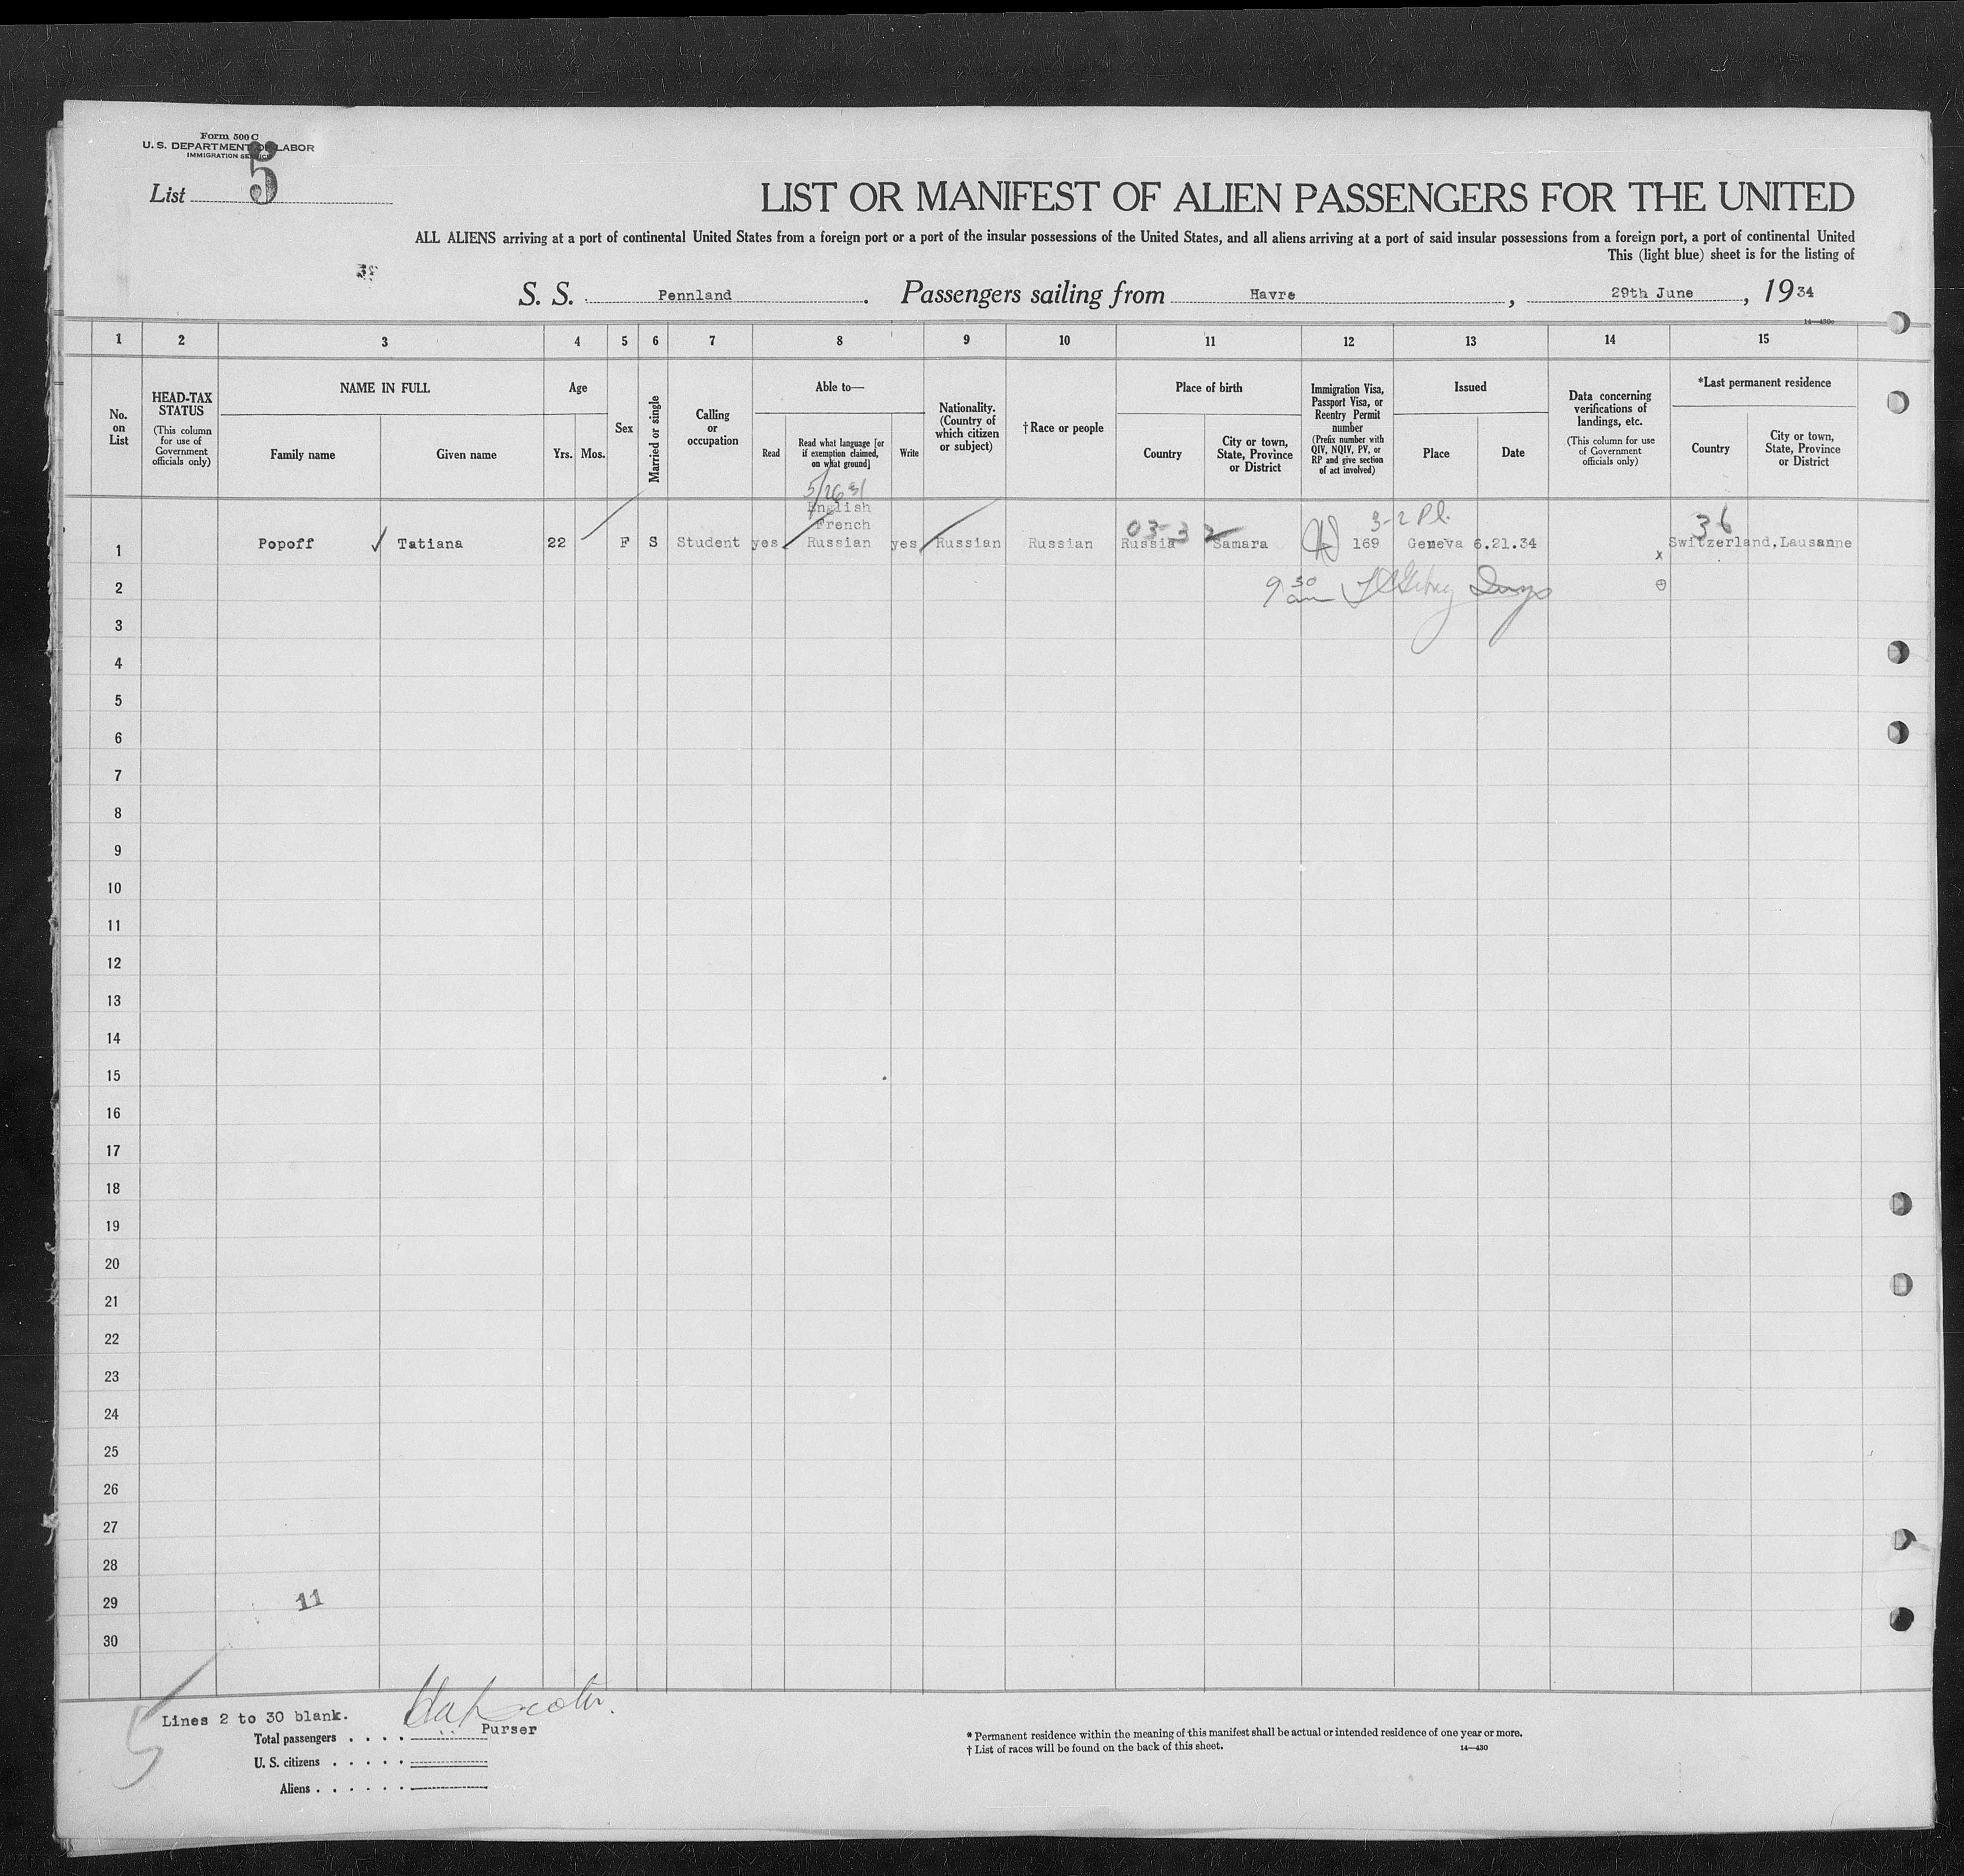 Form 500 C
U. S. DEPARTMENT OF LABOR
IMMIGRATION SERVICE
List 5
LIST OR MANIFEST OF ALIEN PASSENGERS FOR THE UNITED
ALL ALIENS arriving at a port of continental United States from a foreign port or a port of the insular possessions of the United States, and all aliens arriving at a port of said insular possessions from a foreign port, a port of continental United
This (light blue) sheet is for the listing of
S. S. Pennland. Passengers sailing from Havre, 29th June, 1934
14—430c
1 2 3 4 5 6 7 8 9 10 11 12 13 14 15
No. on List
HEAD-TAX STATUS
(This column for use of Government officials only)
NAME IN FULL
Family name
Given name
Age
Yrs.
Mos.
Sex
Married or single
Calling or occupation
Able to—
Read
Read what language [or if exemption claimed, on what ground]
Write
Nationality. (Country of which citizen or subject)
†Race or people
Place of birth
Country
City or town, State, Province or District
Immigration Visa, Passport Visa, or Reentry Permit number
(Prefix number with QIV, NQIV, PV, or RP and give section of act involved)
Issued
Place
Date
Data concerning verifications of landings, etc.
(This column for use of Government officials only)
*Last permanent residence
Country
City or town, State, Province or District
5/26 31
English
French
03-3 3-2 36
1 Popoff ✓ Tatiana 22 F S Student yes Russian yes Russian Russian Russia Samara 169 Geneva 6.21.34 x Switzerland, Lausanne
2 9 30 am
3
4
5
6
7
8
9
10
11
12
13
14
15
16
17
18
19
20
21
22
23
24
25
26
27
28
29 11
30
5
Lines 2 to 30 blank.
Purser
Total passengers . . . .
U. S. citizens . . . . .
Aliens . . . . . .
* Permanent residence within the meaning of this manifest shall be actual or intended residence of one year or more.
† List of races will be found on the back of this sheet.
14—430